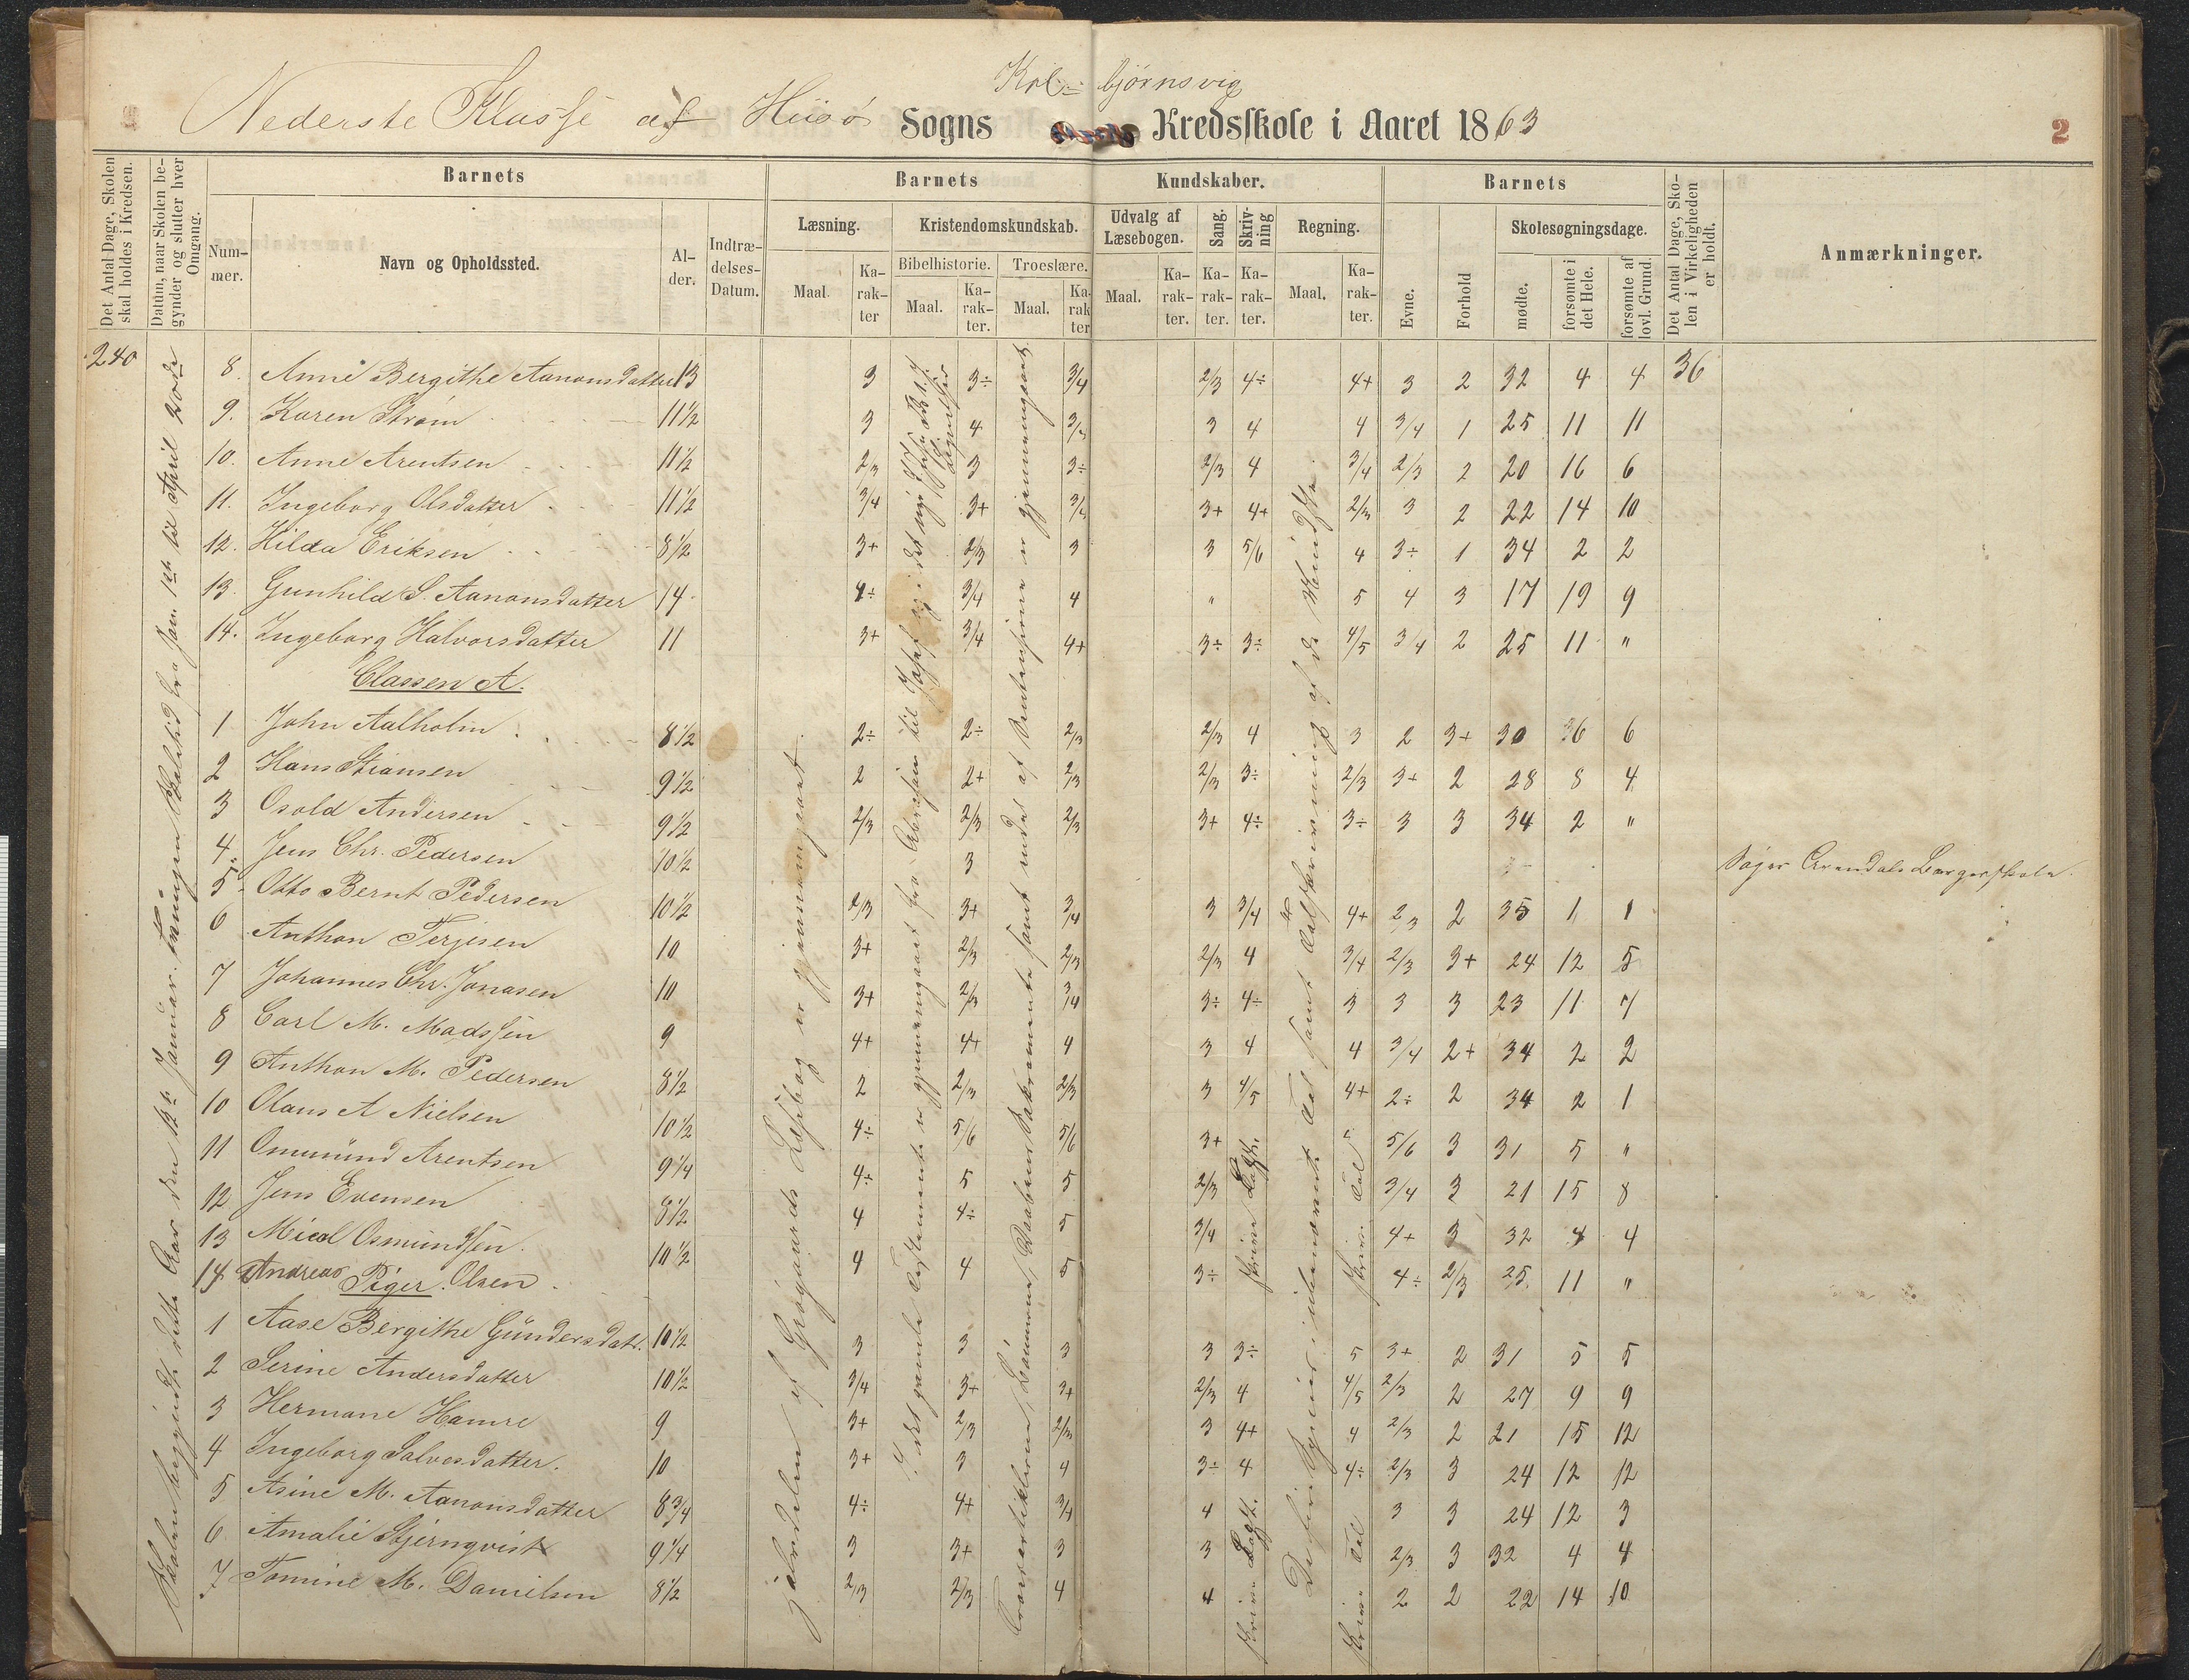 Kol= bjørnsvig
Nederste Klasse af Hisø Sogns Kredsskole i Aaret 1863
2
Barnets
Barnets
Kundskaber.
Barnets
Det Antal Dage, Skolen skal holdes i Kredsen.
Datum, naar Skolen begynder og slutter hver Omgang.
Nummer.
Navn og Opholdssted.
Alder.
Indtrædelses-Datum.
Læsning.
Kristendomskundskab.
Udvalg af Læsebogen.
Sang.
Skrivning
Regning.
Evne.
Forhold
Skolesøgningsdage.
Det Antal Dage, Skolen i Virkeligheden er holdt.
Anmærkninger.
Maal.
Karakter
Bibelhistorie.
Troeslære.
Maal.
Karakter.
Maal.
Karakter
Maal.
Karakter.
Karakter.
Karakter.
Maal.
Karakter.
mødte.
forsømte i det Hele.
forsømte af lovl. Grund.
240
8. Anne Bergithe Aanonsdatter 13 3 3÷ 3/4 2/3 4÷ 4+ 3 2 32 4 4 36
9. Karen Strøm 11 1/2 3 4 3/4 3 4 4 3/4 1 25 11 11
10. Anne Arentsen 11 1/2 2/3 3 3÷ 2/3 4 3/4 2/3 2 20 16 6
11. Ingeborg Olsdatter 11 1/2 3/4 3+ 3/4 3+ 4+ 2/3 3 2 22 14 10
12. Hilda Eriksen 8 1/2 3+ 2/3 3 3 5/6 4 3÷ 1 34 2 2
13. Gunhild S. Aanonsdatter 14 4÷ 3/4 4 " 5 4 3 17 19 9
14. Ingeborg Halvorsdatter 11 3+ 3/4 4+ 3÷ 3÷ 4/5 3/4 2 25 11 "
Classen A.
1 John Aalholm 8 1/2 2÷ 2÷ 2/3 2/3 4 3 2 3+ 30 36 6
2 Hans Stiansen 9 1/2 2 2+ 2/3 2/3 3÷ 2/3 3+ 2 28 8 4
3 Osold Andersen 9 1/2 2/3 2/3 2/3 3+ 4÷ 3÷ 3 3 34 2 "
4. Jens Chr. Pedersen 10 1/2 3 Søger Arendals Borgerskole.
5 Otto Bernt Pedersen 10 1/2 2/3 3+ 3/4 3 3/4 4+ 2/3 2 35 1 1
6 Anthon Terjesen 10 3+ 2/3 2/3 2/3 4 3/4 2/3 3+ 24 12 5
7 Johannes Chr. Jonasen 10 3+ 2/3 3/4 3÷ 4÷ 3 3 3 23 11 7
8 Carl M. Madssen 9 4+ 4+ 4 3 4 4 3/4 2+ 34 2 2
9 Anthon M. Pedersen 8 1/2 2 2/3 2/3 3 4/5 4+ 2÷ 2 34 2 1
10 Olaus A Nielsen 10 1/2 4÷ 5/6 5/6 3+ 5/6 3 31 5 "
11 Omuund Arentsen 9 1/4 4÷ 5 5 2/3 3/4 3 21 15 8
12 Jens Evensen 8 1/2 4 4÷ 5 3/4 4+ 3 32 4 4
13 Micel Osmundsen. 10 1/2 4 4 5 3÷ 4÷ 2/3 25 11 "
14 Andreas Olsen
Piger.
1 Aase Bergithe Gundersdatr. 10 1/2 3 3 3 3 3÷ 5 3+ 2 31 5 5
2 Serine Andersdatter 10 1/2 3/4 3+ 3+ 2/3 4 4/5 2/3 2 27 9 9
3 Hermane Hamre 9 3+ 2/3 2/3 3 4+ 4 2/3 2 21 15 12
4 Ingeborg Salvesdatter. 10 3+ 3 4 3÷ 4 4÷ 2/3 3 24 12 12
5 Asine M. Aanonsdatter 8 3/4 4÷ 4+ 3/4 4 3 3 24 12 3
6 Amalie Stjernqvist 9 1/4 3 3+ 3 3 2/3 3 32 4 4
7 Tomine M. Danielsen 8 1/2 2/3 2/3 4 4 2 2 22 14 10
Skolen begyndt dette Aar den 12te Januar.
Jan. 1ste til April 20de
Gjældeelen af Grøgaards Læsebog er gjennemgaaet.
I det gamle Testamente er gjennemgaaet fra Abraham til Josef
Skrive Tal
Skrive Tal